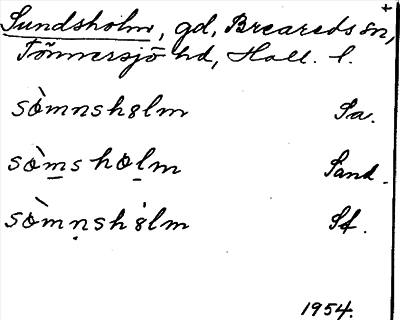 +
Sundsholm, gd, Breareds sn,
Tönnersjö hd, Hall. l.
sòmnshəlm Sa.
sòms holm Sand.
sòmnshəlm Sf.
1954.